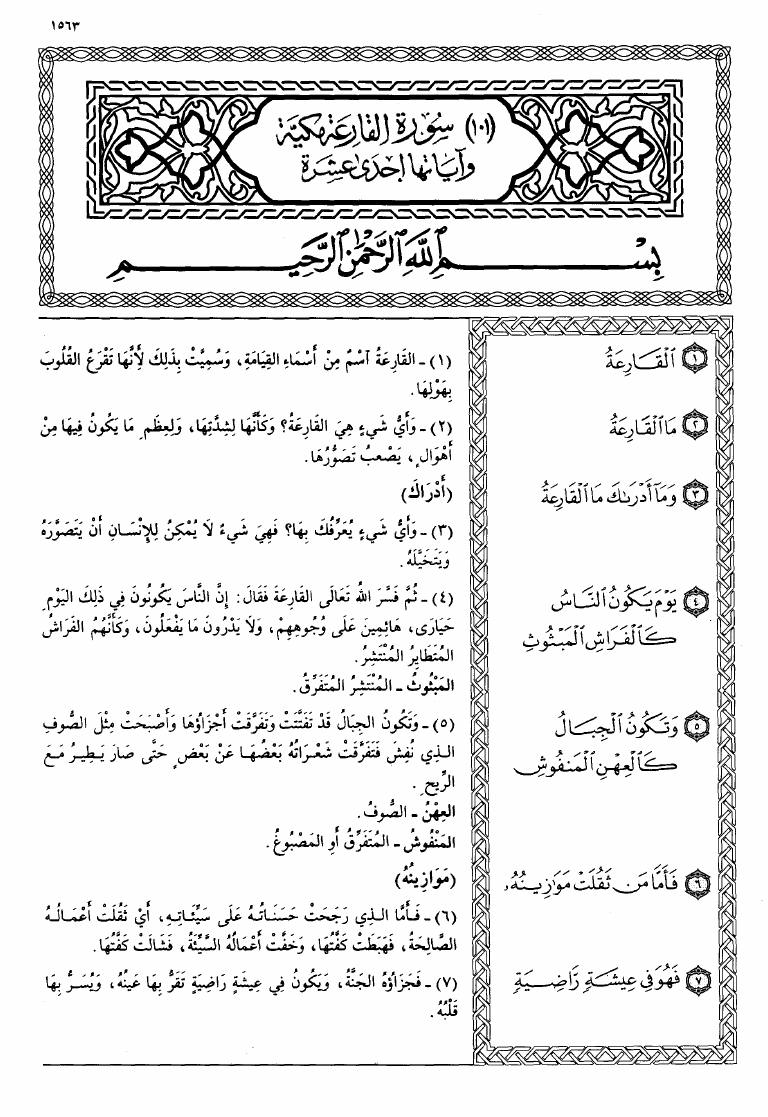 ١٥٦٣
(١٠١) سُورَةُ القَارِعَةِ مَكيَّة
وَآيَاتُهَا إِحْدَى عَشِرَة
بِسْمِ ٱللَّهِ ٱلرَّحْمَٰنِ ٱلرَّحِيمِ
١ ٱلْقَارِعَةُ
٢ مَا ٱلْقَارِعَةُ
٣ وَمَآ أَدْرَىٰكَ مَا ٱلْقَارِعَةُ
٤ يَوْمَ يَكُونُ ٱلنَّاسُ
كَٱلْفَرَاشِ ٱلْمَبْثُوثِ
٥ وَتَكُونُ ٱلْجِبَالُ
كَٱلْعِهْنِ ٱلْمَنفُوشِ
٦ فَأَمَّا مَن ثَقُلَتْ مَوَٰزِينُهُۥ
٧ فَهُوَ فِى عِيشَةٍ رَّاضِيَةٍ
(١) - القَارِعَةُ ٱسْمٌ مِنْ أَسْمَاءِ القِيَامَةِ، وَسُمِّيَتْ بِذَلِكَ لأَنَّهَا تَقْرَعُ القُلُوبَ
بِهَوْلِهَا.
(٢) - وَأَيُّ شَيءٍ هِيَ القَارِعَةُ؟ وَكَأَنَّهَا لِشِدَّتِهَا، وَلِعِظَمِ مَا يَكُونُ فِيهَا مِنْ
أَهْوَالٍ، يَصْعبُ تَصَوُّرُهَا.
(أَدْرَاكَ)
(٣) - وَأَيُّ شَيءٍ يُعَرِّفُكَ بِهَا؟ فَهِيَ شَيءٌ لاَ يُمْكِنُ لِلإِنْسَانِ أَنْ يَتَصَوَّرَهُ
وَيَتَخَيَّلَهُ.
(٤) - ثُمَّ فَسَّرَ اللهُ تَعَالَى القَارِعَةَ فَقَالَ: إِنَّ النَّاسَ يَكُونُونَ فِي ذَلِكَ اليَوْمِ
حَيَارَى، هَائِمِينَ عَلَى وُجُوهِهِمْ، وَلاَ يَدْرُونَ مَا يَفْعَلُونَ، وَكَأَنَّهُمُ الفَرَاشُ
المُتَطَايِرُ المُنْتَشِرُ.
المَبْثُوثُ - المُنْتَشِرُ المُتَفَرِّقُ.
(٥) - وَتَكُونُ الجِبَالُ قَدْ تَفَتَّتَتْ وَتَفَرَّقَتْ أَجْزَاؤُهَا وَأَصْبَحَتْ مِثْلَ الصُّوفِ
الذِي نُفِشَ فَتَفَرَّقَتْ شَعْرَاتُهُ بَعْضُهَا عَنْ بَعْضٍ حَتَّى صَارَ يَطِيرُ مَعَ
الرِّيحِ.
العِهْنُ - الصُّوفُ.
المَنْفُوشُ - المُتَفَرِّقُ أَوِ المَصْبُوغُ.
(مَوَازِينُهُ)
(٦) - فَأَمَّا الذِي رَجَحَتْ حَسَنَاتُهُ عَلَى سَيِّئَاتِهِ، أَيْ ثَقُلَتْ أَعْمَالُهُ
الصَّالِحَةُ، فَهَبَطَتْ كَفَّتُهَا، وَخَفَّتْ أَعْمَالُهُ السَّيِّئَةُ، فَشَالَتْ كَفَّتُهَا.
(٧) - فَجَزَاؤُهُ الجَنَّةُ، وَيَكُونُ فِي عِيشَةٍ رَاضِيَةٍ تَقَرُّ بِهَا عَينُهُ، وَيُسَرُّ بِهَا
قَلْبُهُ.